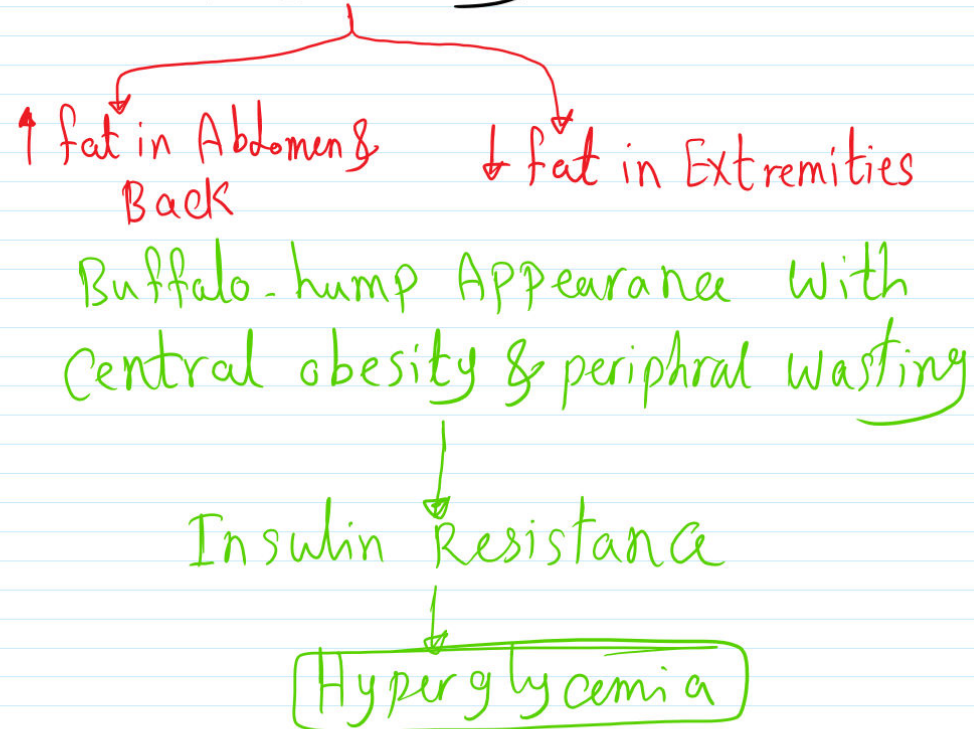 ↑ fat in Abdomen &
Back
↓ fat in Extremities
Buffalo-hump Appearance with
Central obesity & periphral wasting
Insulin Resistance
Hyperglycemia